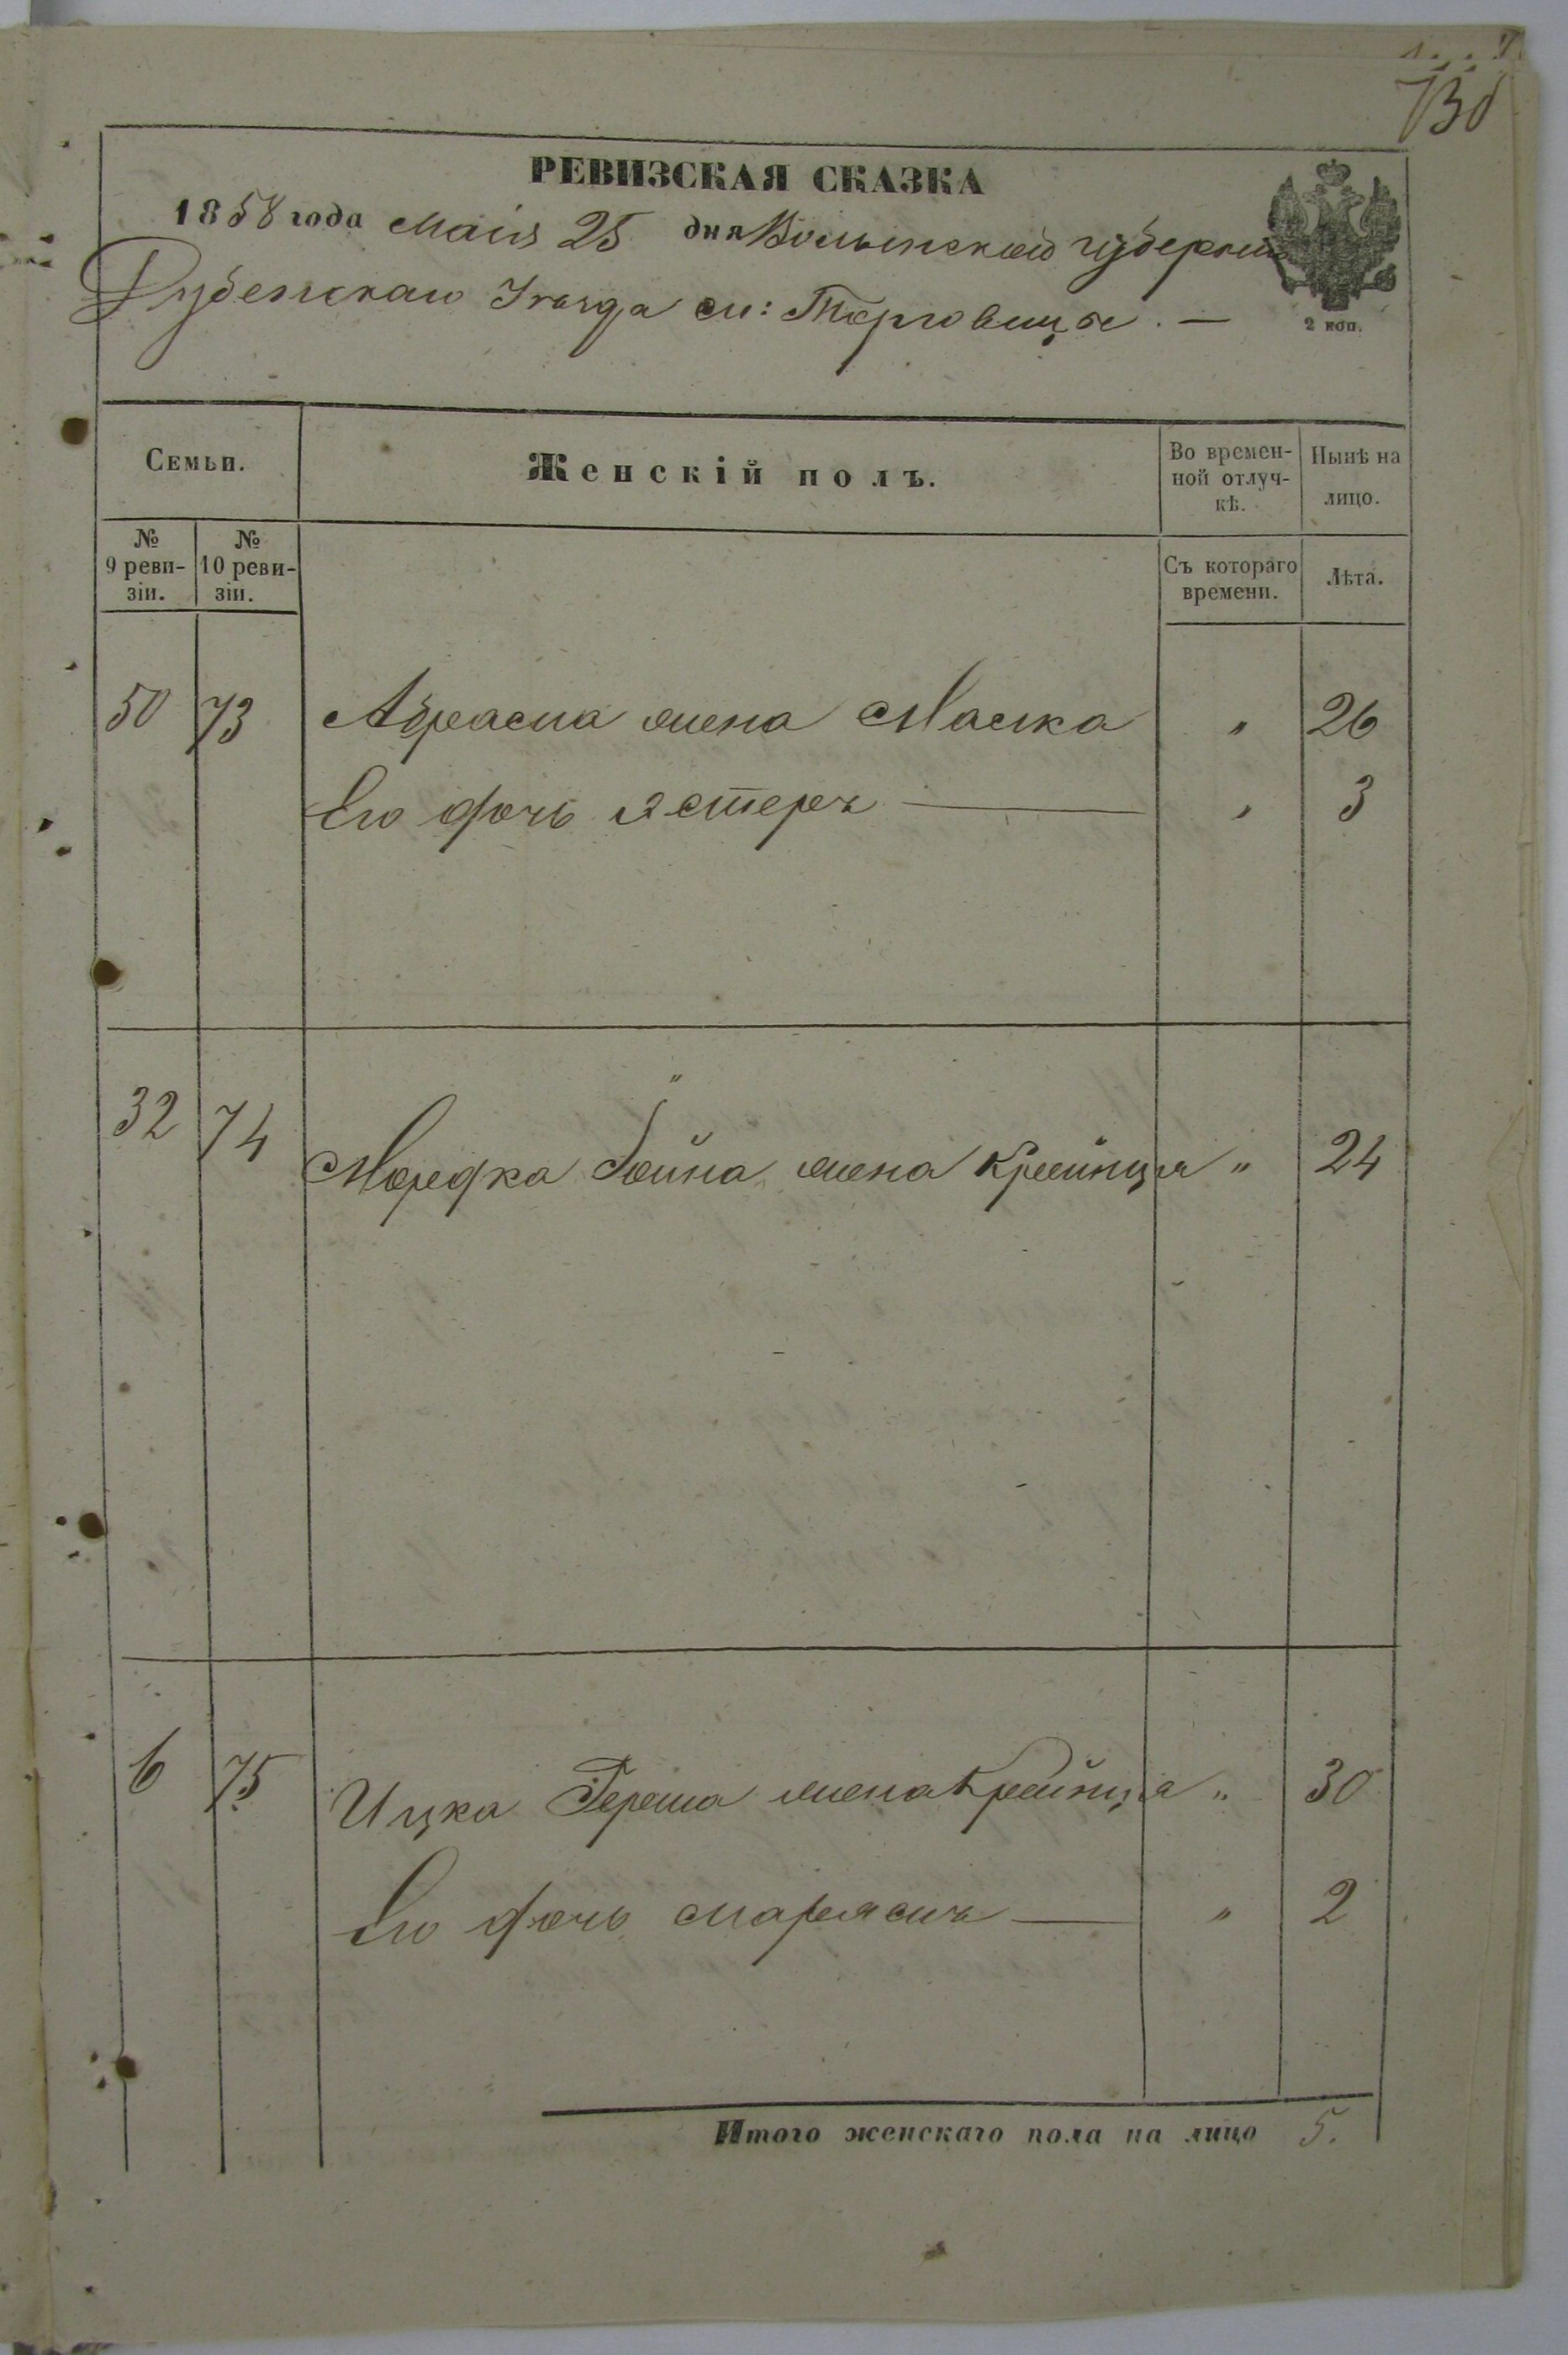 730
РЕВИЗСКАЯ СКАЗКА
1858 года Маія 25 дня Волынской губерніи
Дубенскаго Уезда м: Торговицы. —
2 коп.
Семьи.
Женскій полъ.
Во времен-
ной отлуч-
кѣ.
Нынѣ на
лицо.
№
9 реви-
зіи.
№
10 реви-
зіи.
Съ котораго
времени.
Лѣта.
50 73 Абрама жена Малка " 26
Его дочь Эстеръ — " 3
"
32 74 Мордка жена Крейнця " 24
6 75 Ицка Герша жена Крейнця " 30
Его дочь Марямъ — " 2
Итого женскаго пола на лицо 5.